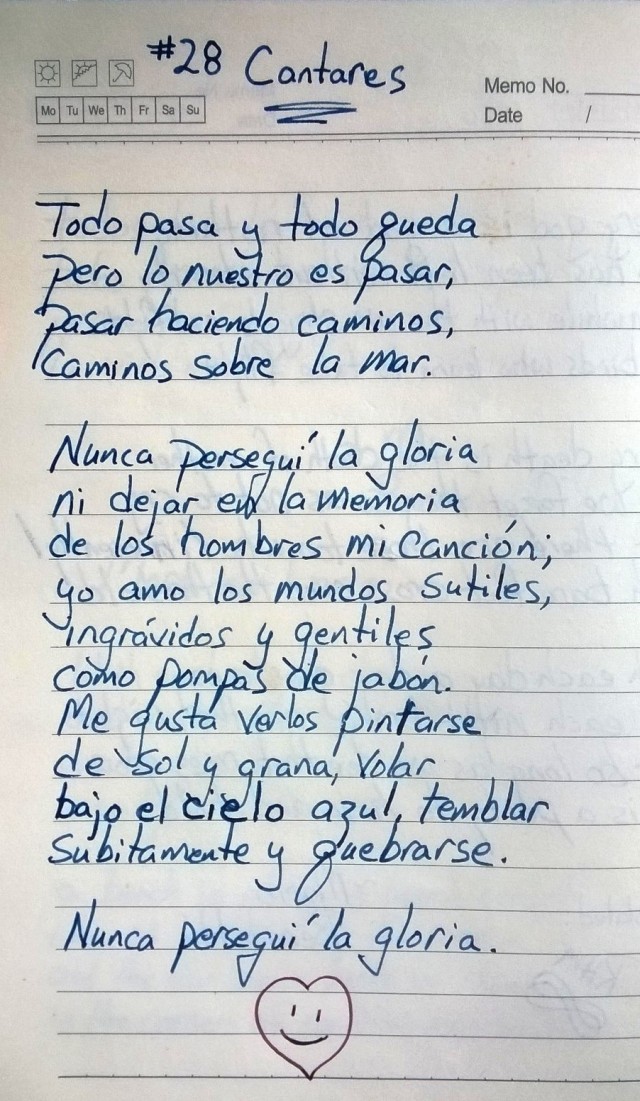 #28 Cantares
Memo No.
Date /
Mo Tu We Th Fr Sa Su
Todo pasa y todo queda
pero lo nuestro es pasar,
pasar haciendo caminos,
Caminos sobre la mar.
Nunca perseguí la gloria
ni dejar en la memoria
de los hombres mi canción;
yo amo los mundos sutiles,
ingrávidos y gentiles
como pompas de jabón.
Me gusta verlos pintarse
de sol y grana, volar
bajo el cielo azul, temblar
subitamente y quebrarse.
Nunca perseguí la gloria.